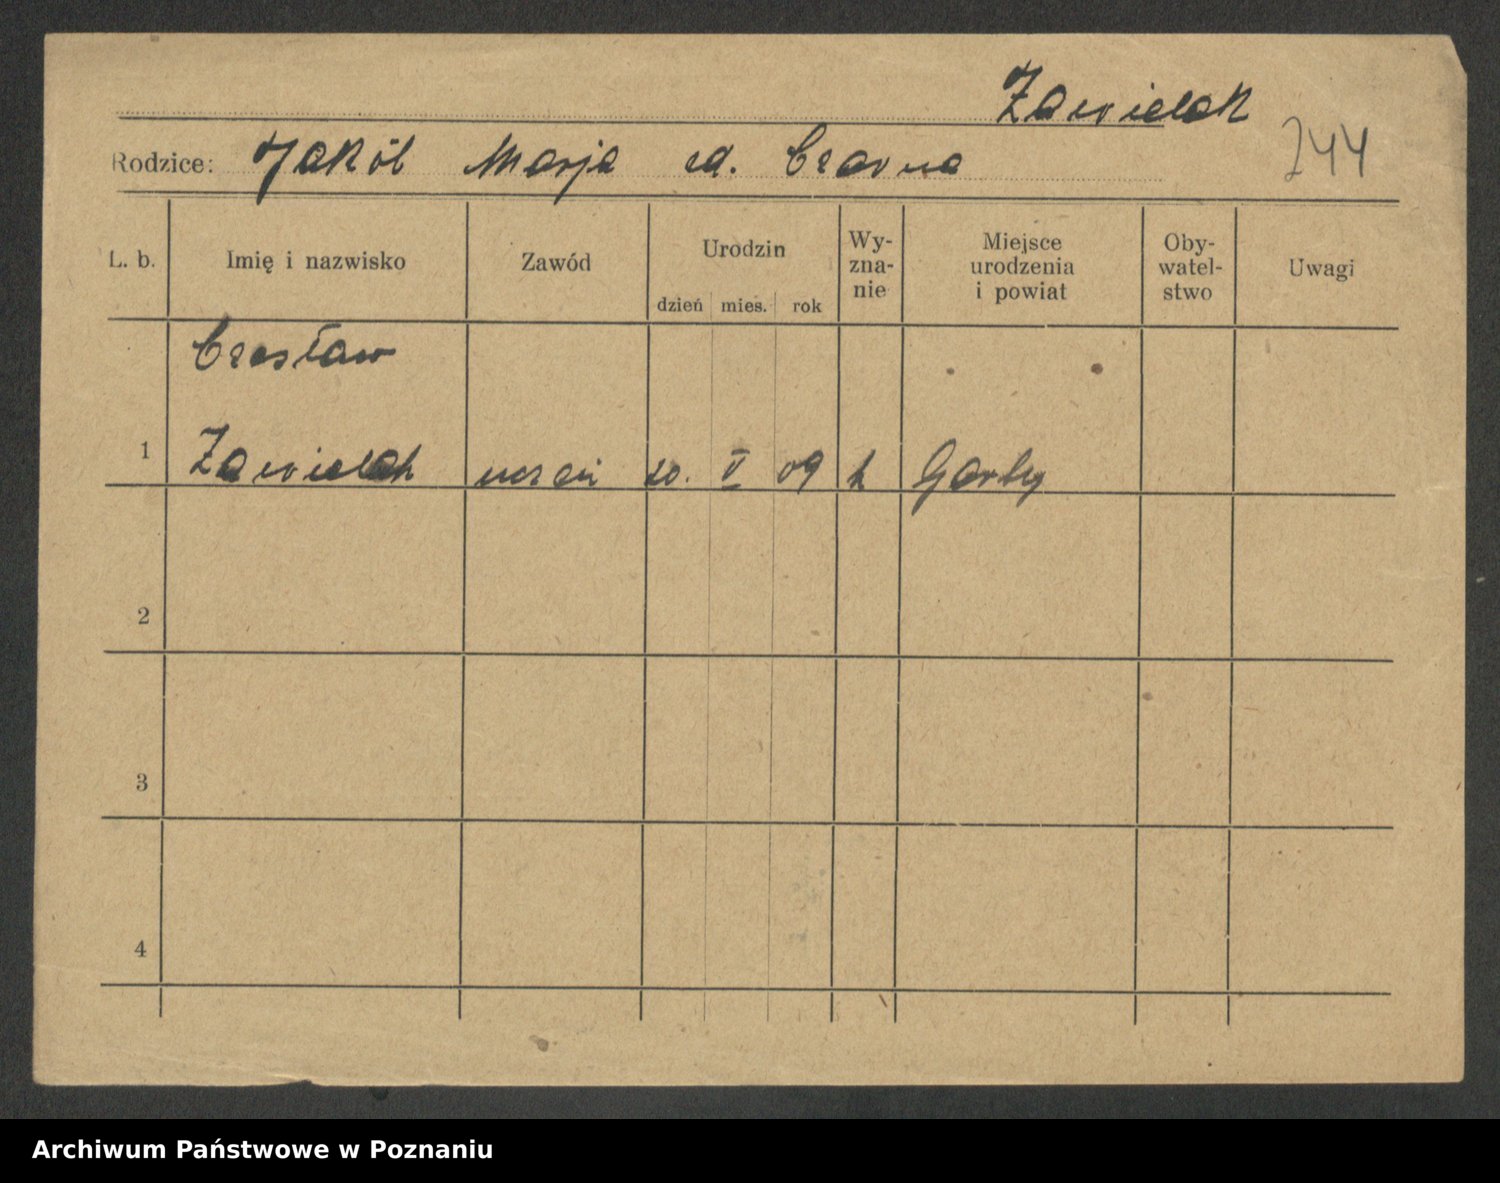 Zawielak
Rodzice: Jakób Marja zd. Czarna
244
L. b. Imię i nazwisko Zawód Urodzin Wy-
zna-
nie Miejsce
urodzenia
i powiat Oby-
watel-
stwo Uwagi
dzień mies. rok
Czesław
1 Zawielak uczeń V 09 k Garby
2
3
4
Archiwum Państwowe w Poznaniu